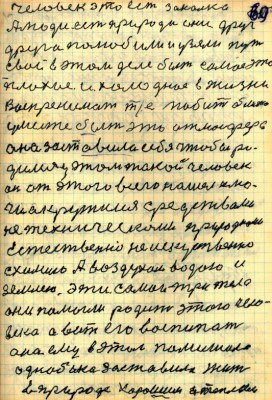 человек это ест закалка
А люди ест природа они друг
друга полюбили и узяли пут
свой в этом деле быт самое это
плохое и холодное в жизни
Воспренимат
умете быт это атмосфера
она заставила себя чтобы ро-
дился у этом такой человек
он от этого всего нашел клю-
чи
не техническими природном
Естественно не искуственно
А воздухом водою и
землею. эти самои три тела
они помогли родит этого чело-
века а вот его воспитат
она ему в этом помишала
одно она заставила жит
в природе хорошим и теплом